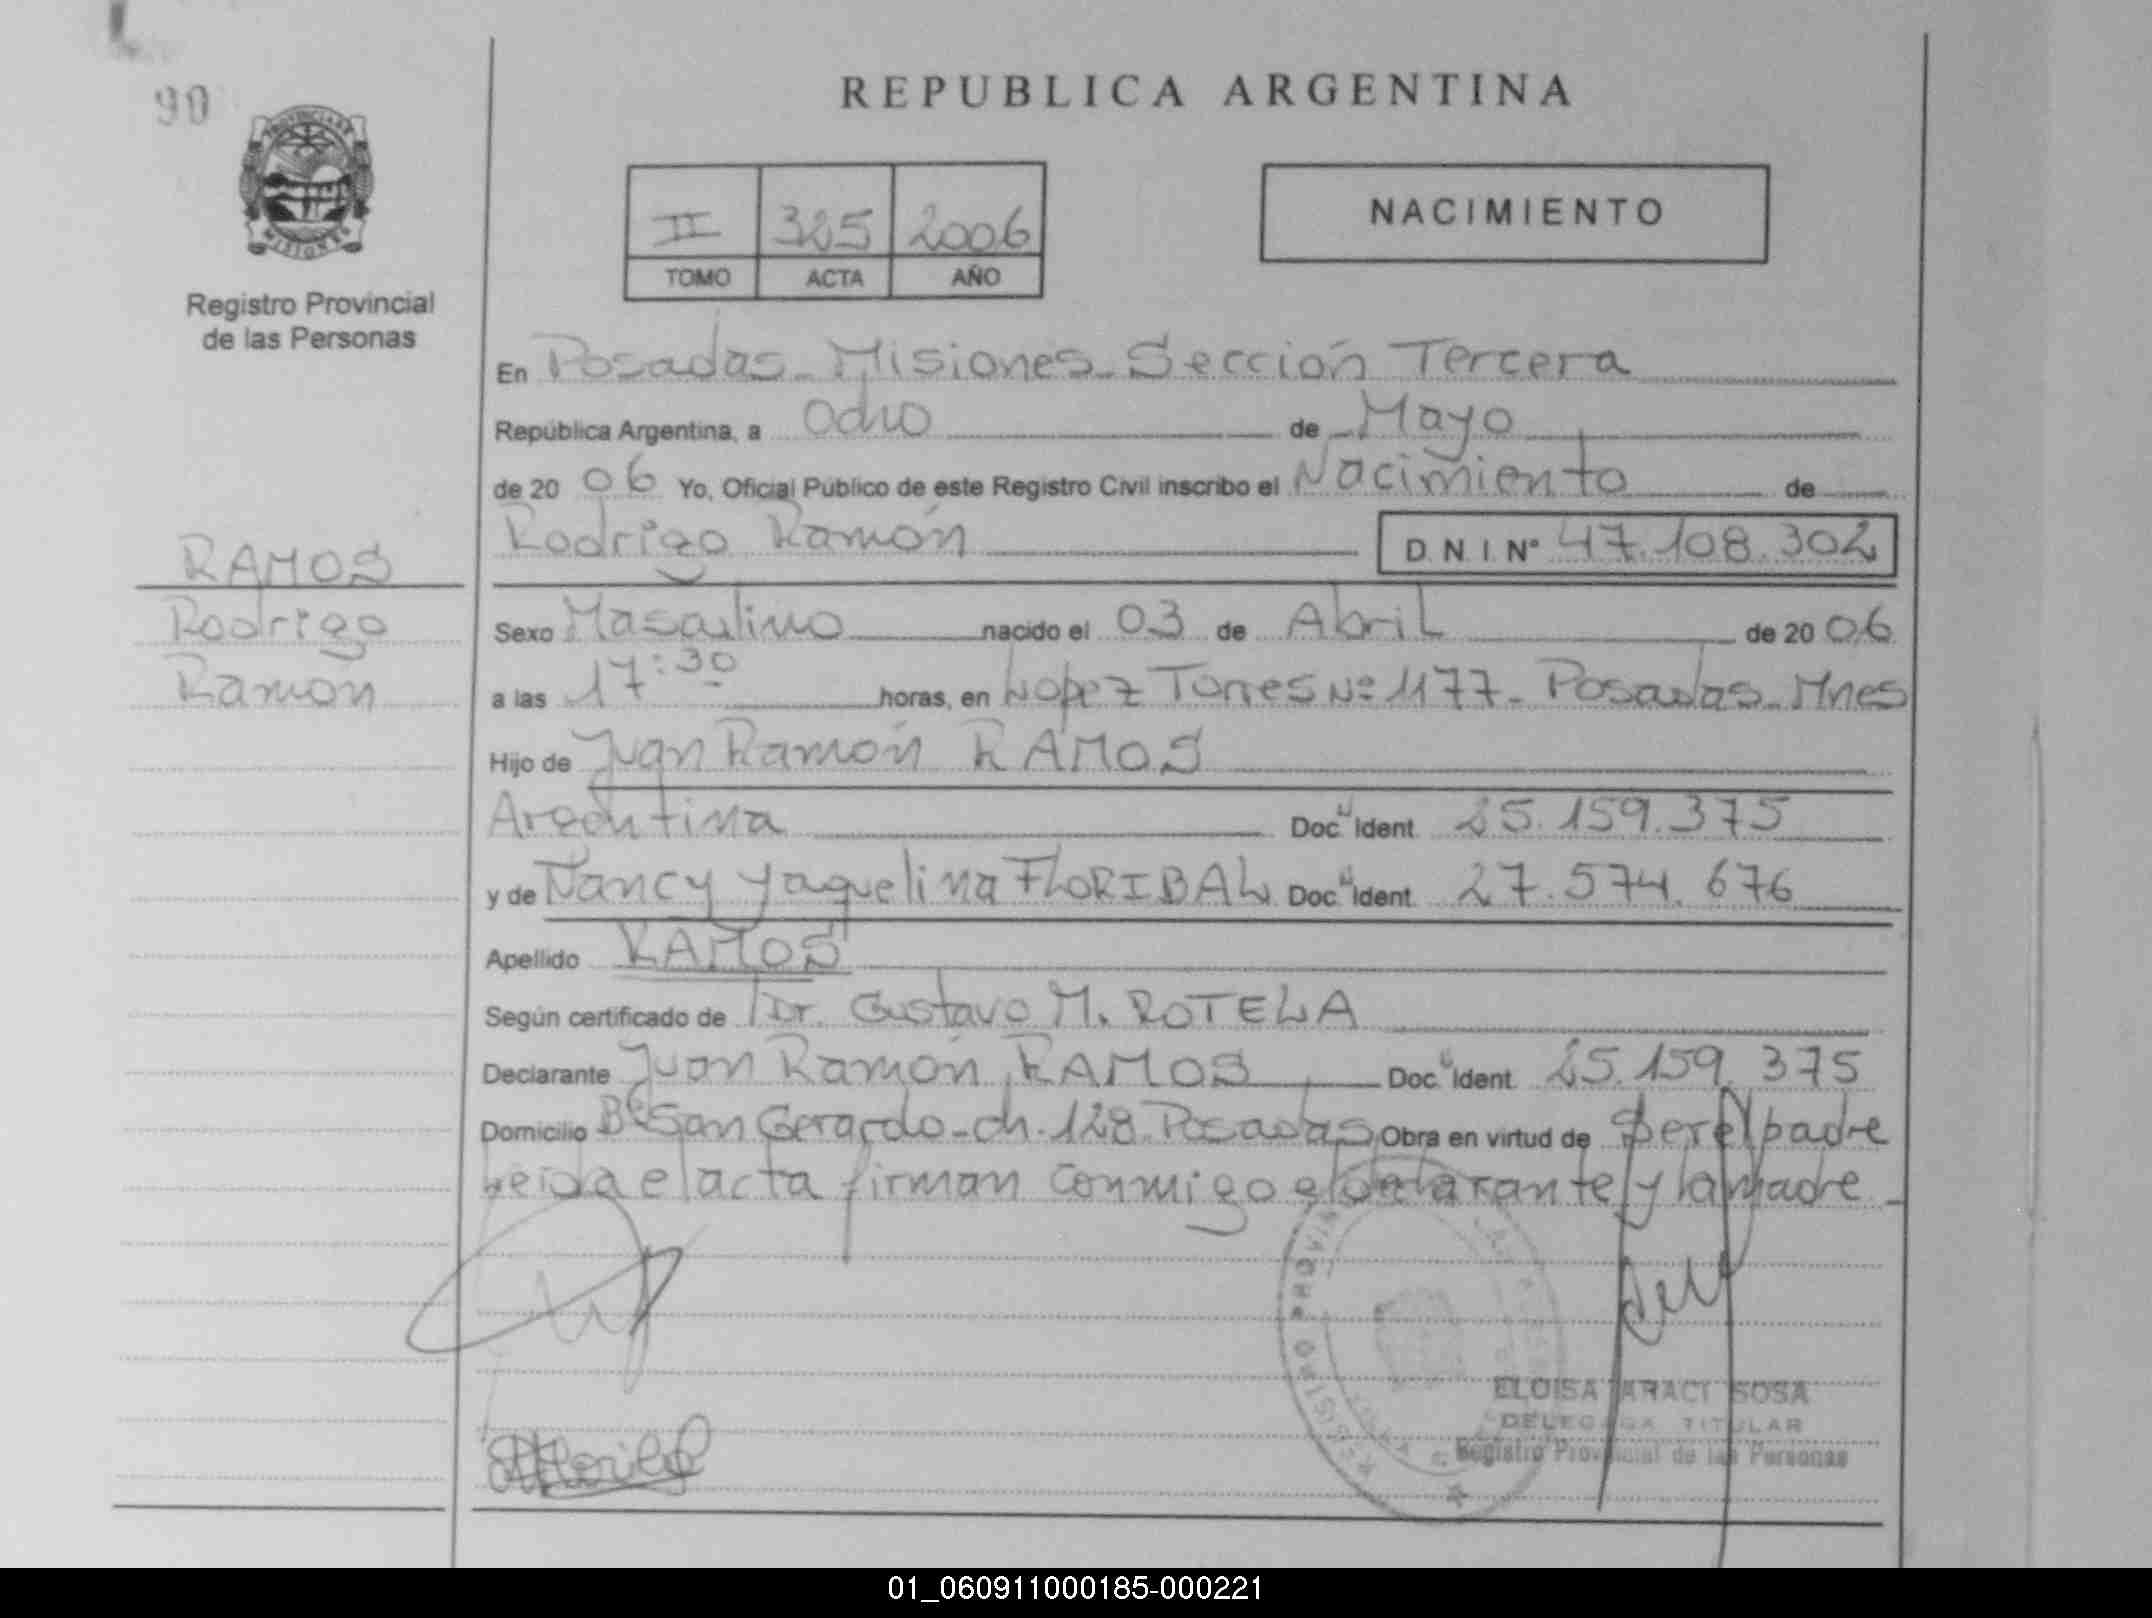 90
REPUBLICA ARGENTINA
PROVINCIA DE
MISIONES
Registro Provincial
de las Personas
II 325 2006
TOMO ACTA AÑO
NACIMIENTO
En Posadas - Misiones - Sección Tercera
República Argentina, a Ocho de Mayo
de 20 06 Yo, Oficial Público de este Registro Civil inscribo el Nacimiento de
Rodrigo Ramón D.N.I. Nº 47.108.302
RAMOS
Rodrigo
Ramón
Sexo Masculino nacido el 03 de Abril de 20 06
a las 17:30 horas, en Lopez Torres Nº 1177 - Posadas - Mnes
Hijo de Juan Ramón RAMOS
Argentina Doc. Ident. 25.159.375
y de Nancy Yaquelina FLORIBAL Doc. Ident. 27.574.676
Apellido RAMOS
Según certificado de Dr. Gustavo M. ROTELA
Declarante Juan Ramón RAMOS Doc. Ident. 25.159.375
Domicilio Bº San Gerardo - ch. 128 Posadas Obra en virtud de ser el padre
Leida el acta firman conmigo el declarante y la madre -
ELOISA ARACI SOSA
DELEGADA TITULAR
Registro Provincial de las Personas
01_060911000185-000221